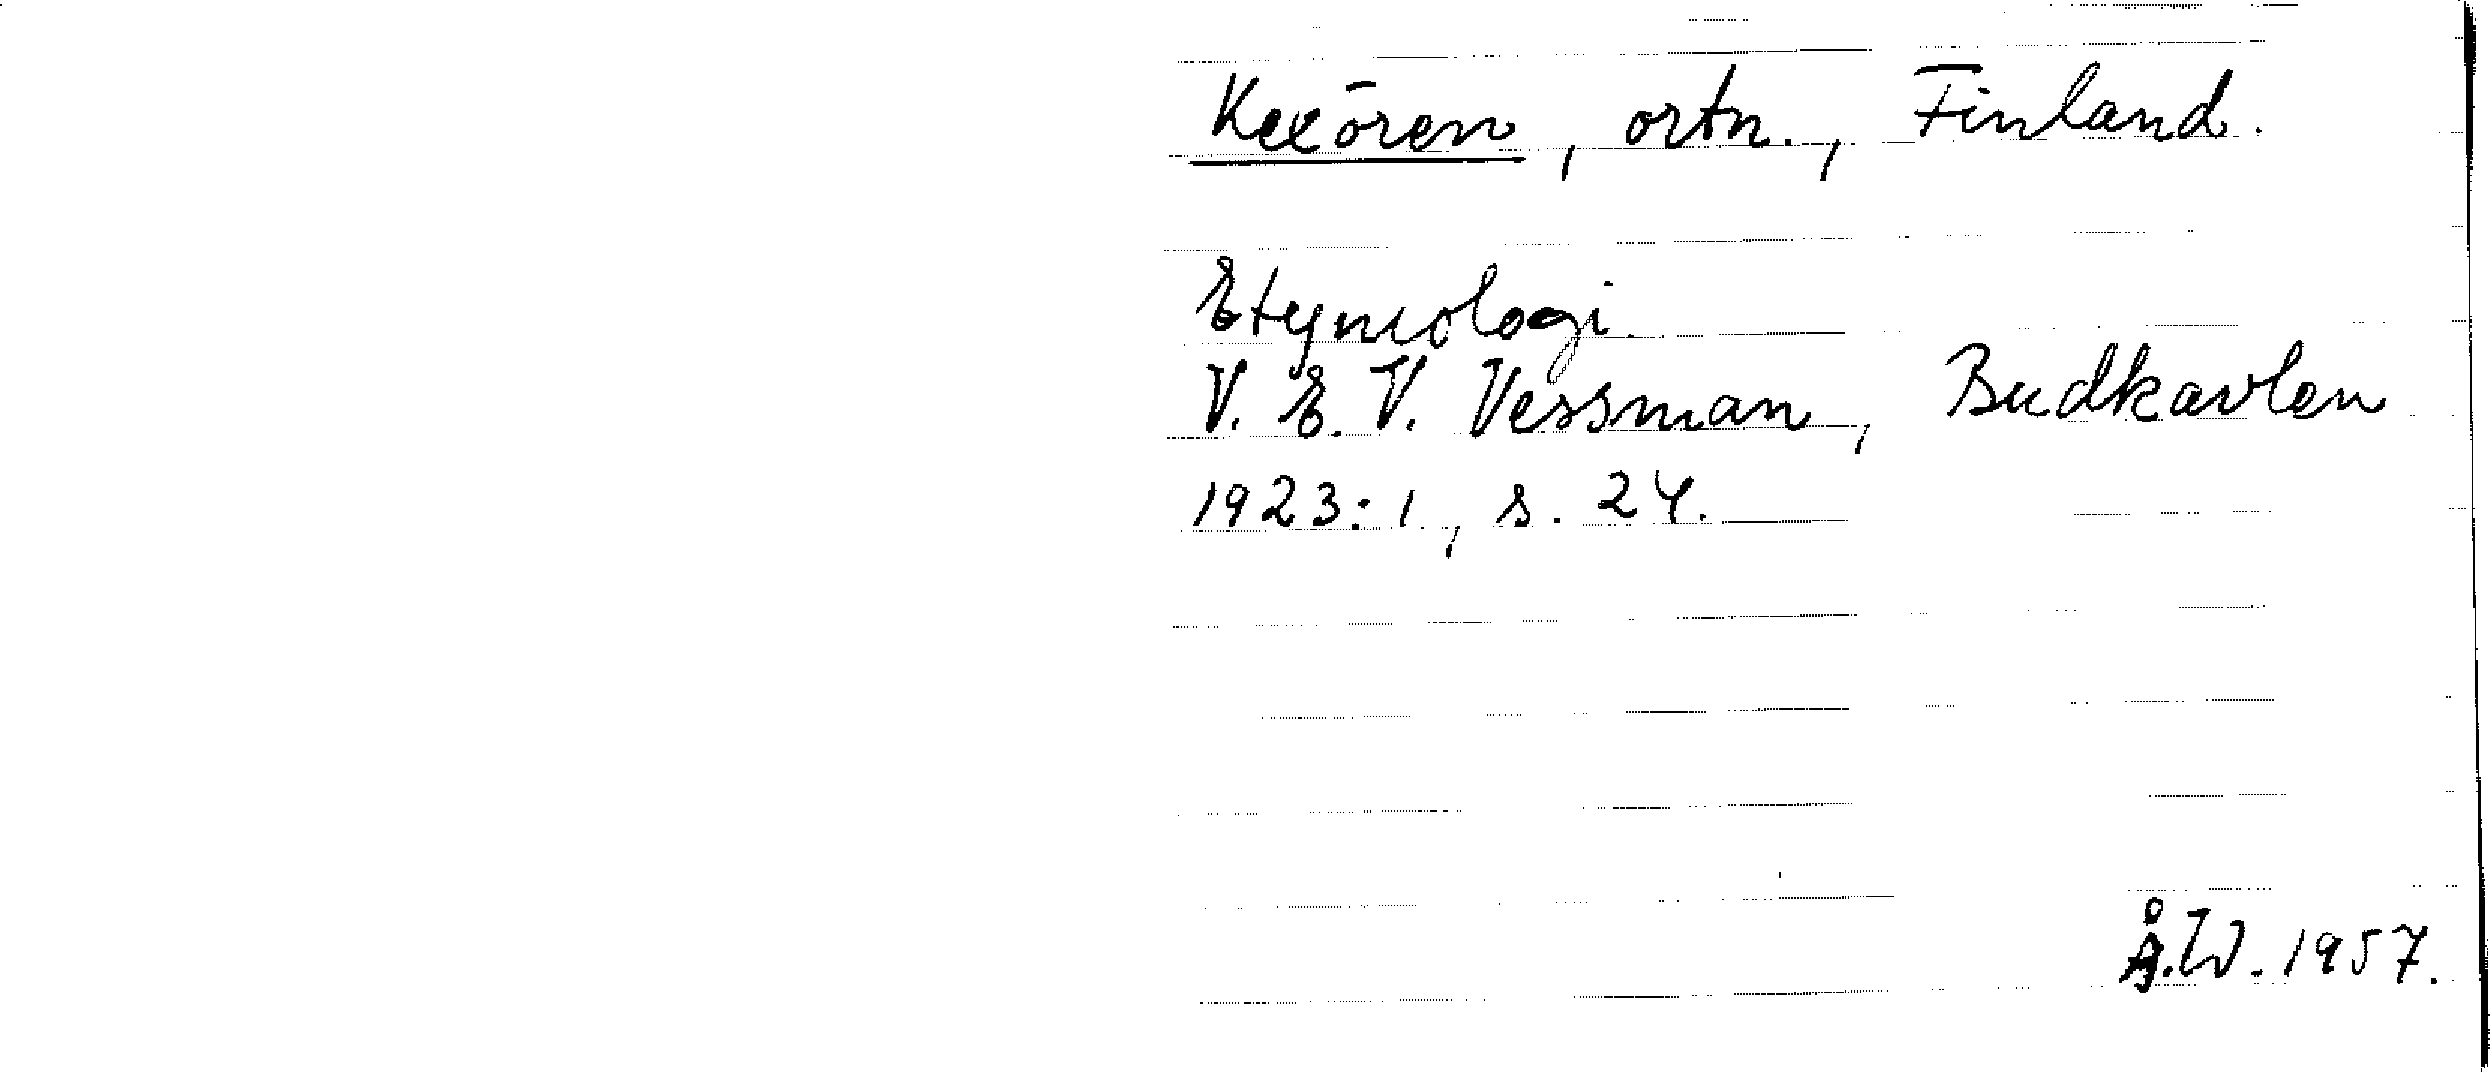 Kexören, ortn., Finland.
Etymologi
V. E. V. Vessman, Budkavlen
1923:1, s. 24.
Å.W. 1957.